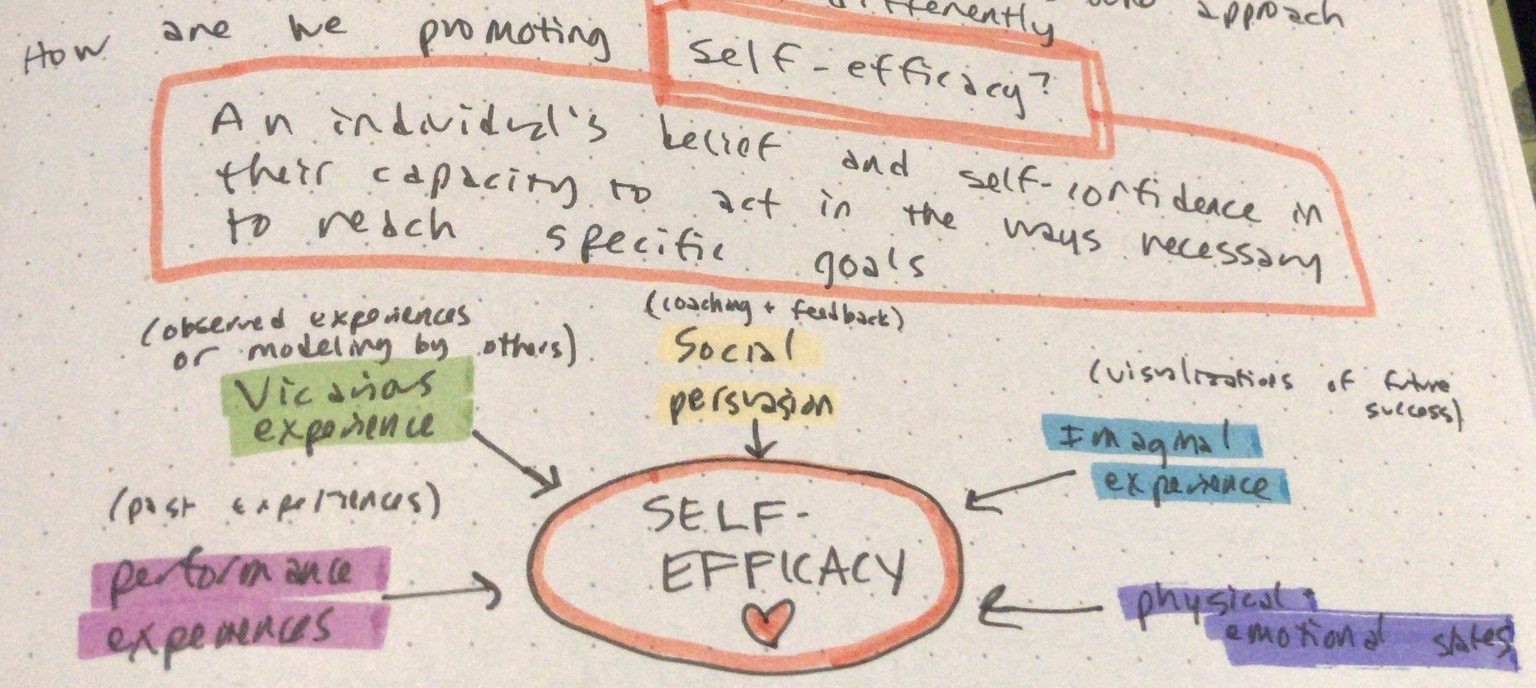 differently
approach
How are we promoting self-efficacy?
An individual's belief and self-confidence in
their capacity to act in the ways necessary
to reach specific goals
(observed experiences
or modeling by others)
Vicarious
experience
(coaching + feedback)
Social
persuasion
(visualizations of future
success)
Imaginal
experience
(past experiences)
performance
experiences
SELF-
EFFICACY
physical +
emotional states